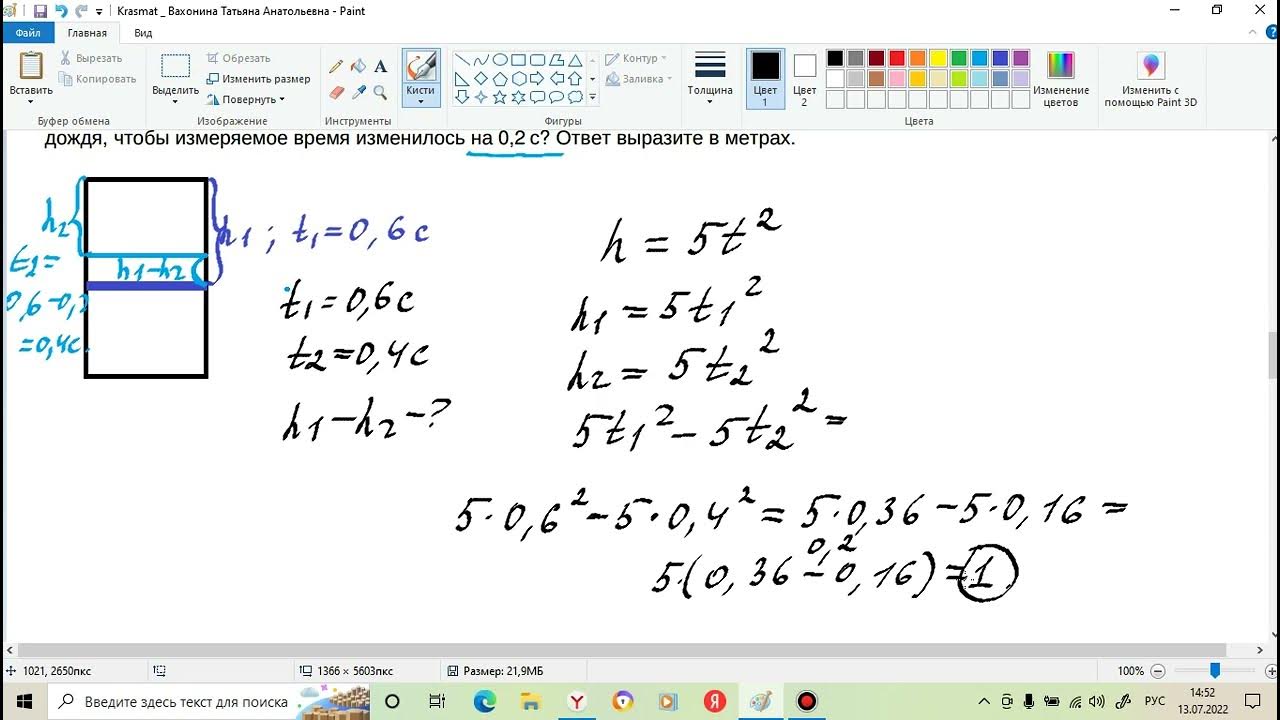 Krasmat _ Вахонина Татьяна Анатольевна - Paint
Файл Главная Вид
Вставить
Вырезать
Копировать
Буфер обмена
Выделить
Обрезать
Изменить размер
Повернуть
Изображение
A
Инструменты
Кисти
Контур
Заливка
Фигуры
Толщина
Цвет 1
Цвет 2
Изменение цветов
Цвета
Изменить с помощью Paint 3D
дождя, чтобы измеряемое время изменилось на 0,2 с? Ответ выразите в метрах.
h2
h1 ; t1=0,6c
t2=
h1-h2
0,6-0,2
=0,4c.
t1=0,6c
t2=0,4c
h1-h2-?
h = 5t²
h1 = 5t1²
h2 = 5t2²
5t1² - 5t2² =
5·0,6² - 5·0,4² = 5·0,36 - 5·0,16 =
0,2
5·(0,36 - 0,16) = 1
1021, 2650пкс
1366 × 5603пкс
Размер: 21,9МБ
100%
Введите здесь текст для поиска
Y
Я
РУС
14:52
13.07.2022